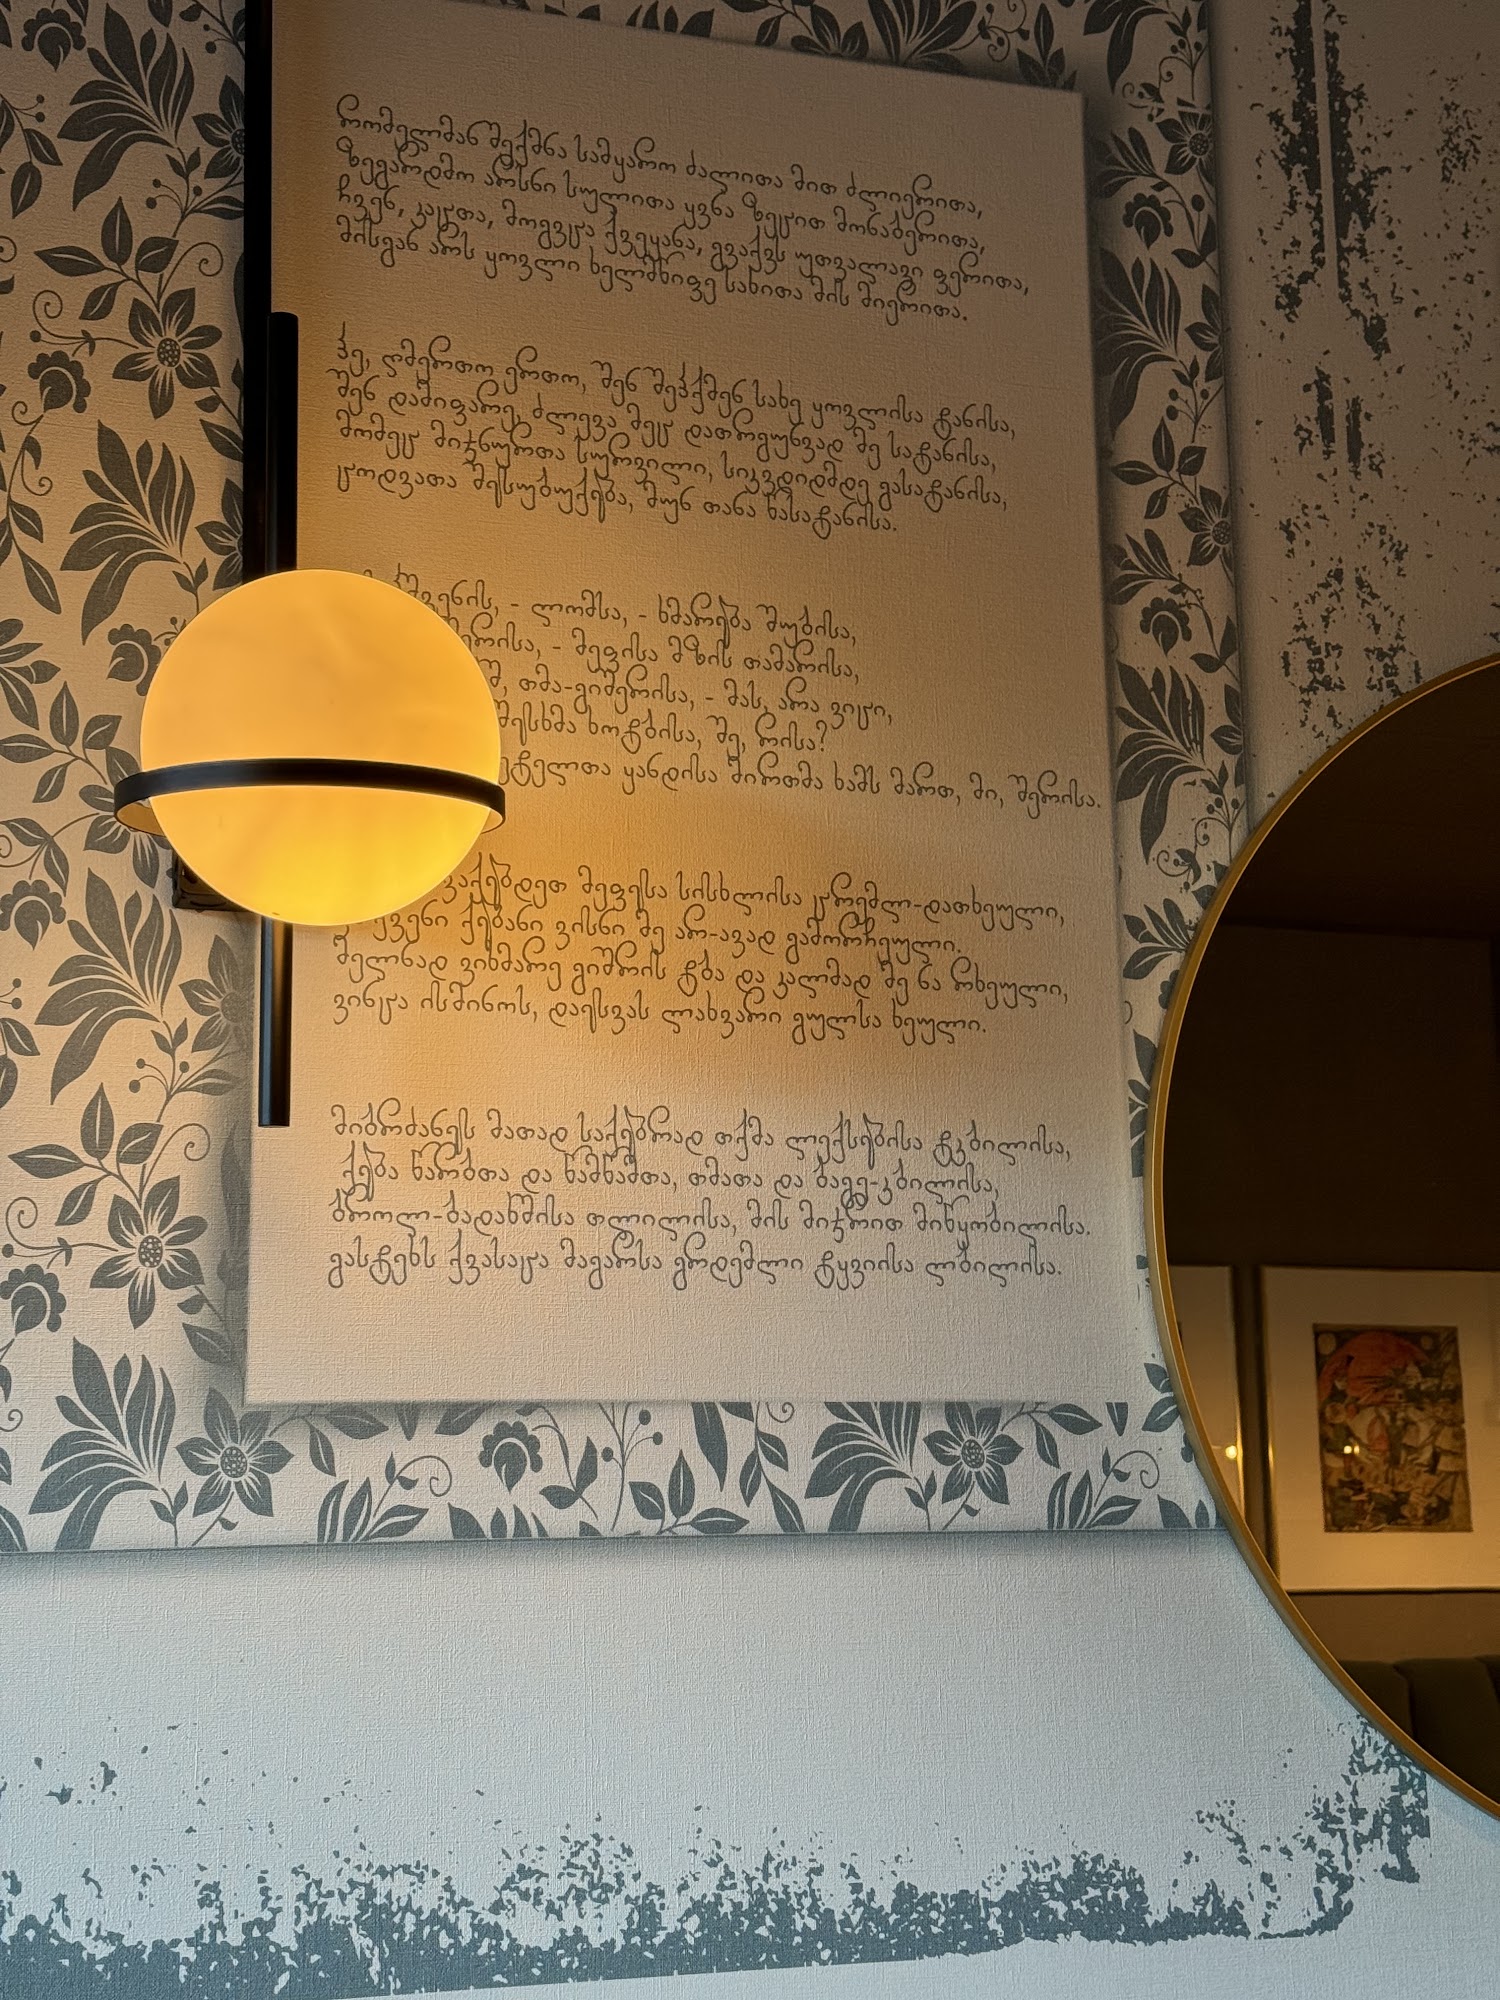 რომელმან შექმნა სამყარო ძალითა მით ძლიერითა,
ზეგარდმო არსნი სულითა ყვნა ზეცით მონაბერითა,
ჩვენ, კაცთა, მოგვცა ქვეყანა, გვაქვს უთვალავი ფერითა,
მისგან არს ყოვლი ხელმწიფე სახითა მის მიერითა.
ჰე, ღმერთო ერთო, შენ შეჰქმენ სახე ყოვლისა ტანისა,
შენ დამიფარე, ძლევა მეც დათრგუნვად მე სატანისა,
მომეც მიჯნურთა სურვილი, სიკვდიდმდე გასატანისა,
ცოდვათა შესუბუქება, მუნ თანა წასატანისა.
ჰშვენის, - ლომსა, - ხმარება შუბისა,
- მეფისა მზის თამარისა,
თმა-გიშერისა, - მას, არა ვიცი,
შესხმა ხოტბისა, შე, რისა?
ყანდისა მირთმა ხამს მართ, მი, შერისა.
მეფესა სისხლისა ცრემლ-დათხეული,
ქებანი ვისნი მე არ-ავად გამორჩეული.
მელნად ვიხმარე გიშრის ტბა და კალმად მე ნა რხეული,
ვინცა ისმინოს, დაესვას ლახვარი გულსა ხეული.
მიბრძანეს მათად საქებრად თქმა ლექსებისა ტკბილისა,
ქება წარბთა და წამწამთა, თმათა და ბაგე-კბილისა,
ბროლ-ბადახშისა თლილისა, მის მიჯრით მიწყობილისა.
გასტეხს ქვასაცა მაგარსა გრდემლი ტყვიისა ლბილისა.